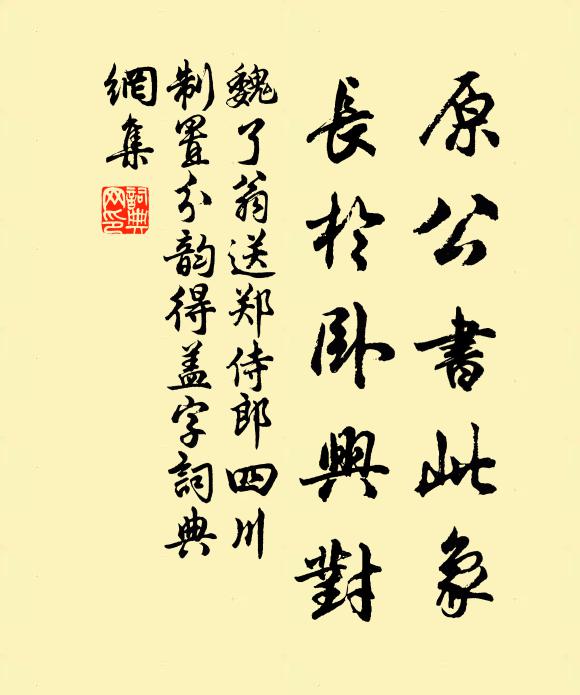 原公書此象
長於卧興對
魏了翁送郑侍郎四川
制置分韵得盖字詞典
網集
詞典网印